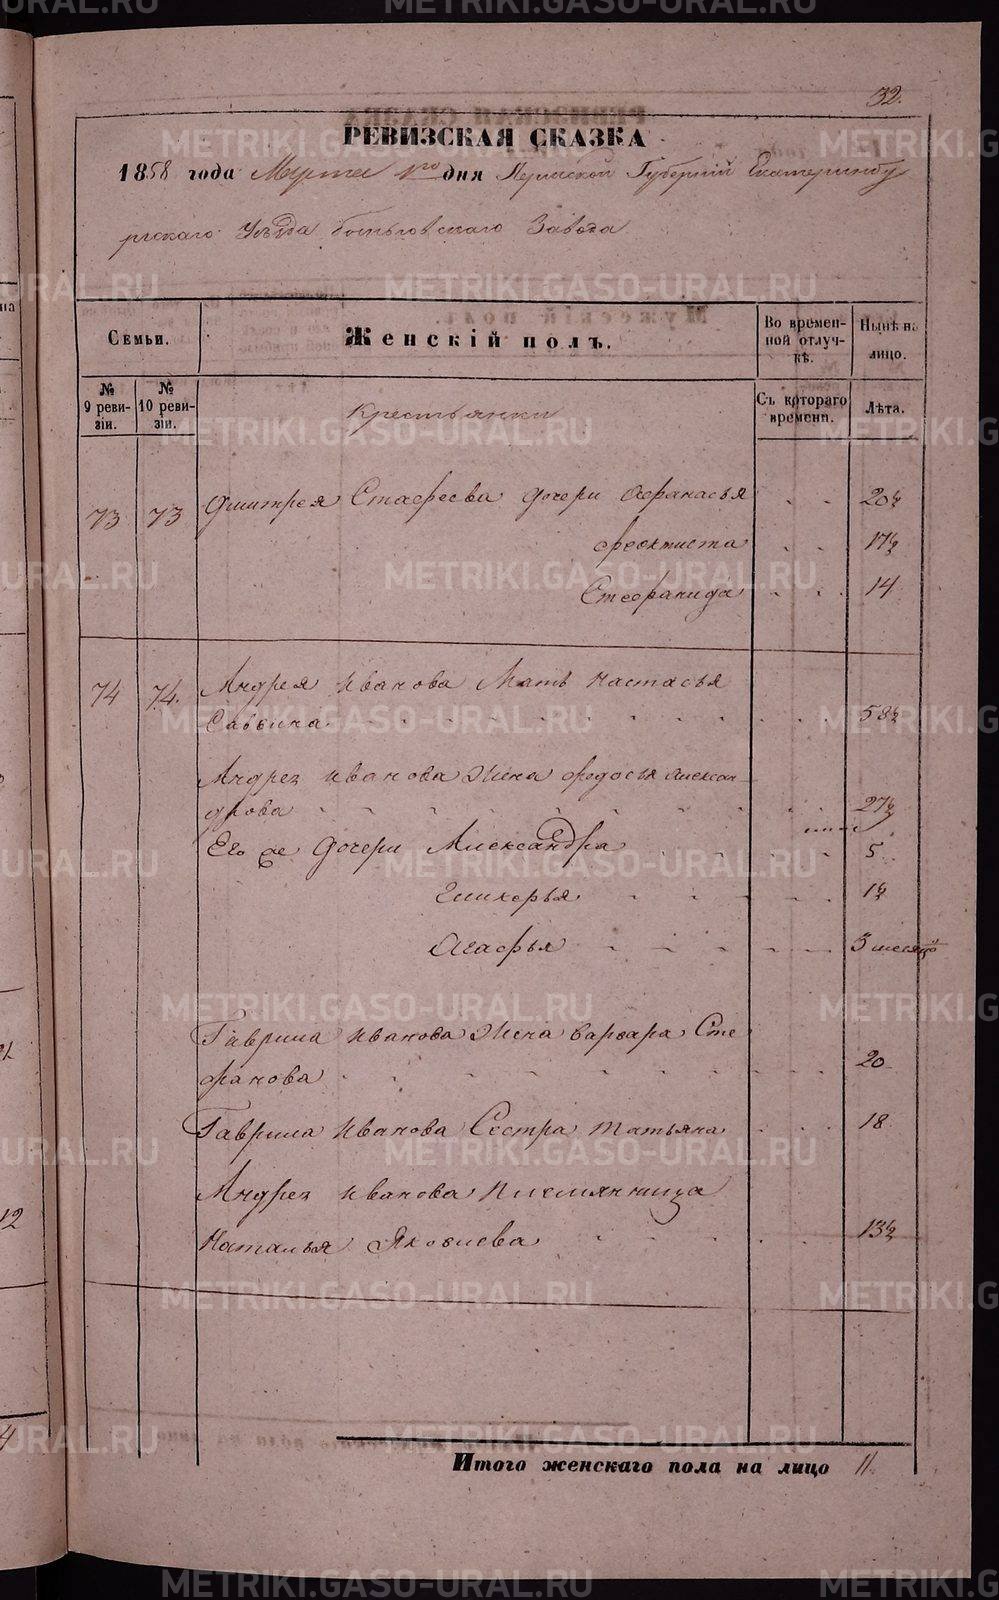 32.
РЕВИЗСКАЯ СКАЗКА
1858 года Марта 1го дня Пермской Губернiи Екатеринбу
ргскаго Уѣзда Заводa
Семьи.
Женскiй полъ.
Во времен-
ной отлуч-
кѣ.
Нынѣ на
лицо.
№
9 реви-
зiи.
№
10 реви-
зiи.
Съ котораго
времени.
Лѣта.
Крестьянки
73 73 Дмитрея Стафеева дочери Афанасья 20½
Феоктиста 17½
Стефанида 14
74 74. Андрея Иванова Мать Настасья
Саввина 58½
Андрея Иванова Жена Федосья Алексан-
дрова 27½
Его же Дочери Александра 5
Гликерья 1½
Агафья 3 месяцъ
Гаврила Иванова Жена Варвара Сте
фанова 20
Гаврила Иванова Сестра Татьяна 18
Андрея Иванова Племянница
Наталья Яковлева 13½
Итого женскаго пола на лицо 11.
METRIKI.GASO-URAL.RU